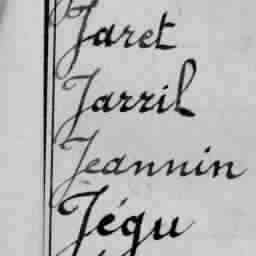 Jaret
Jarril
Jeannin
Jégu